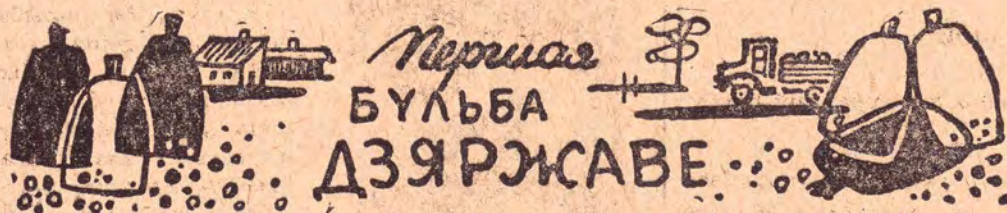 Першая
БУЛЬБА
ДЗЯРЖАВЕ